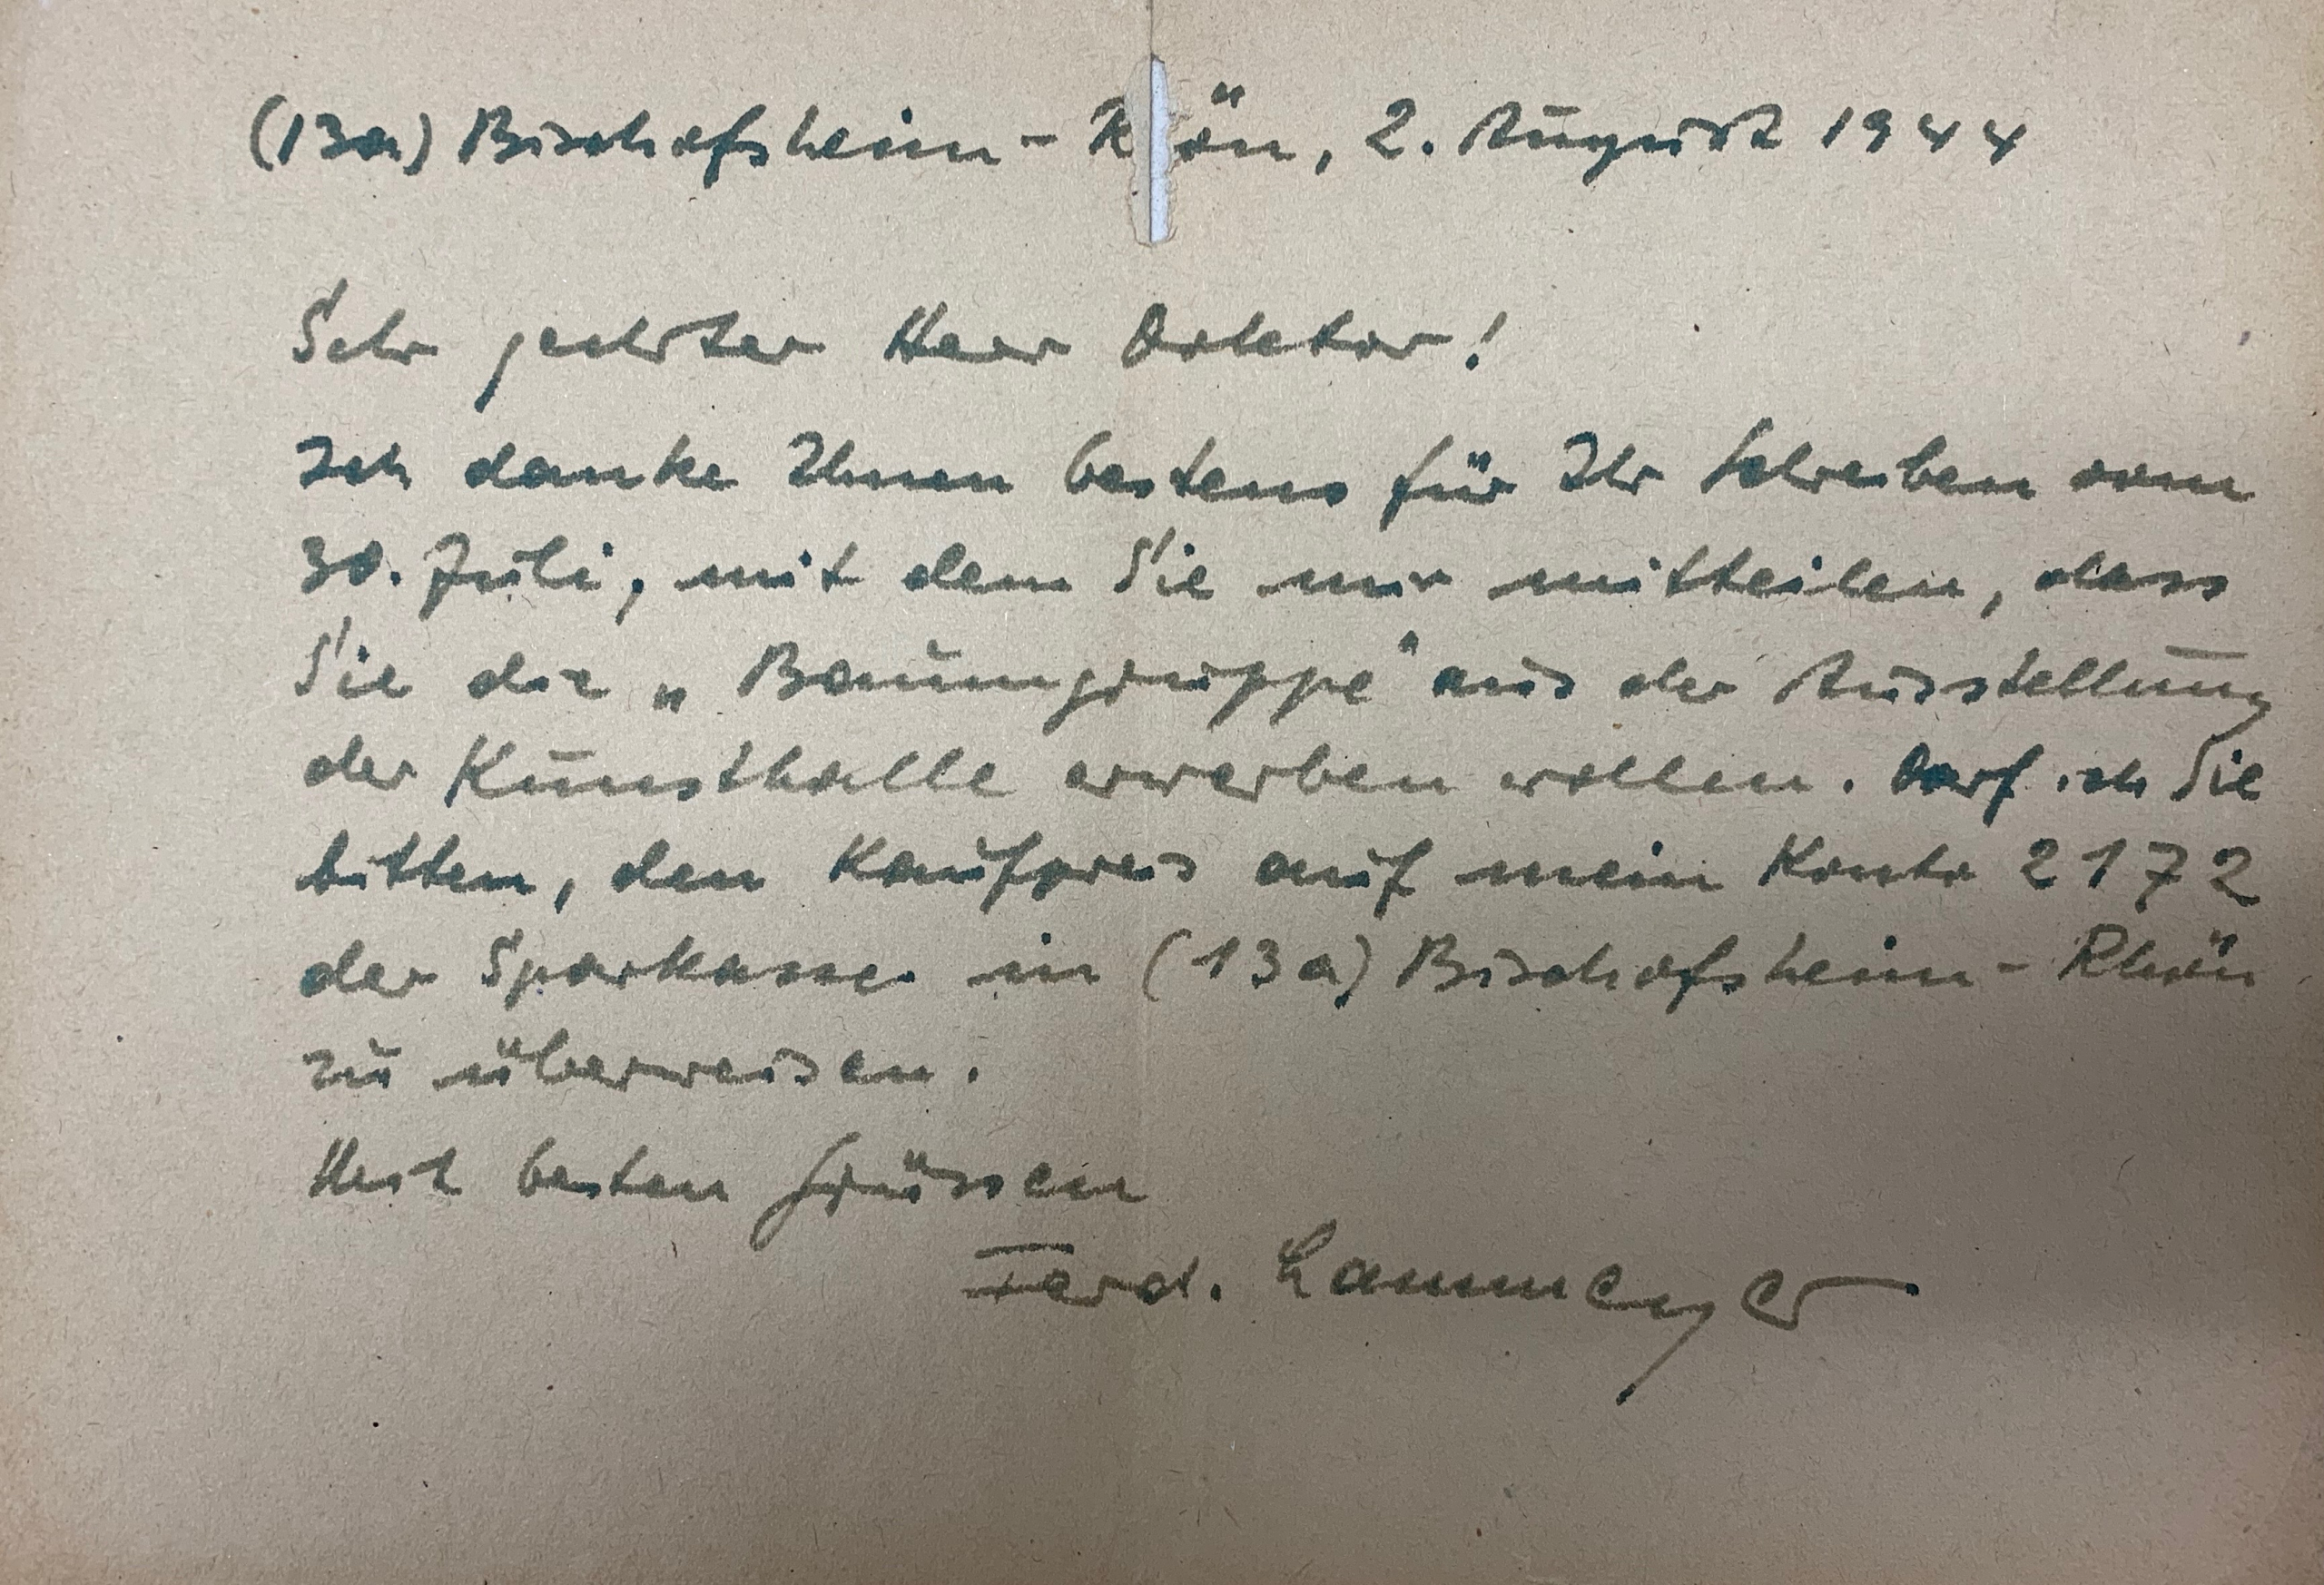 (13a) Bischofsheim - Rhön, 2. August 1944
Sehr geehrter Herr Doktor!
Ich danke Ihnen bestens für Ihr Schreiben vom
30. Juli, mit dem Sie mir mitteilen, dass
Sie die „Baumgruppe" aus der Ausstellung
der Kunsthalle erwerben wollen. Darf ich Sie
bitten, den Kaufpreis auf mein Konto 2172
der Sparkasse in (13a) Bischofsheim - Rhön
zu überweisen.
Mit besten Grüssen
Ferd. Lammeyer